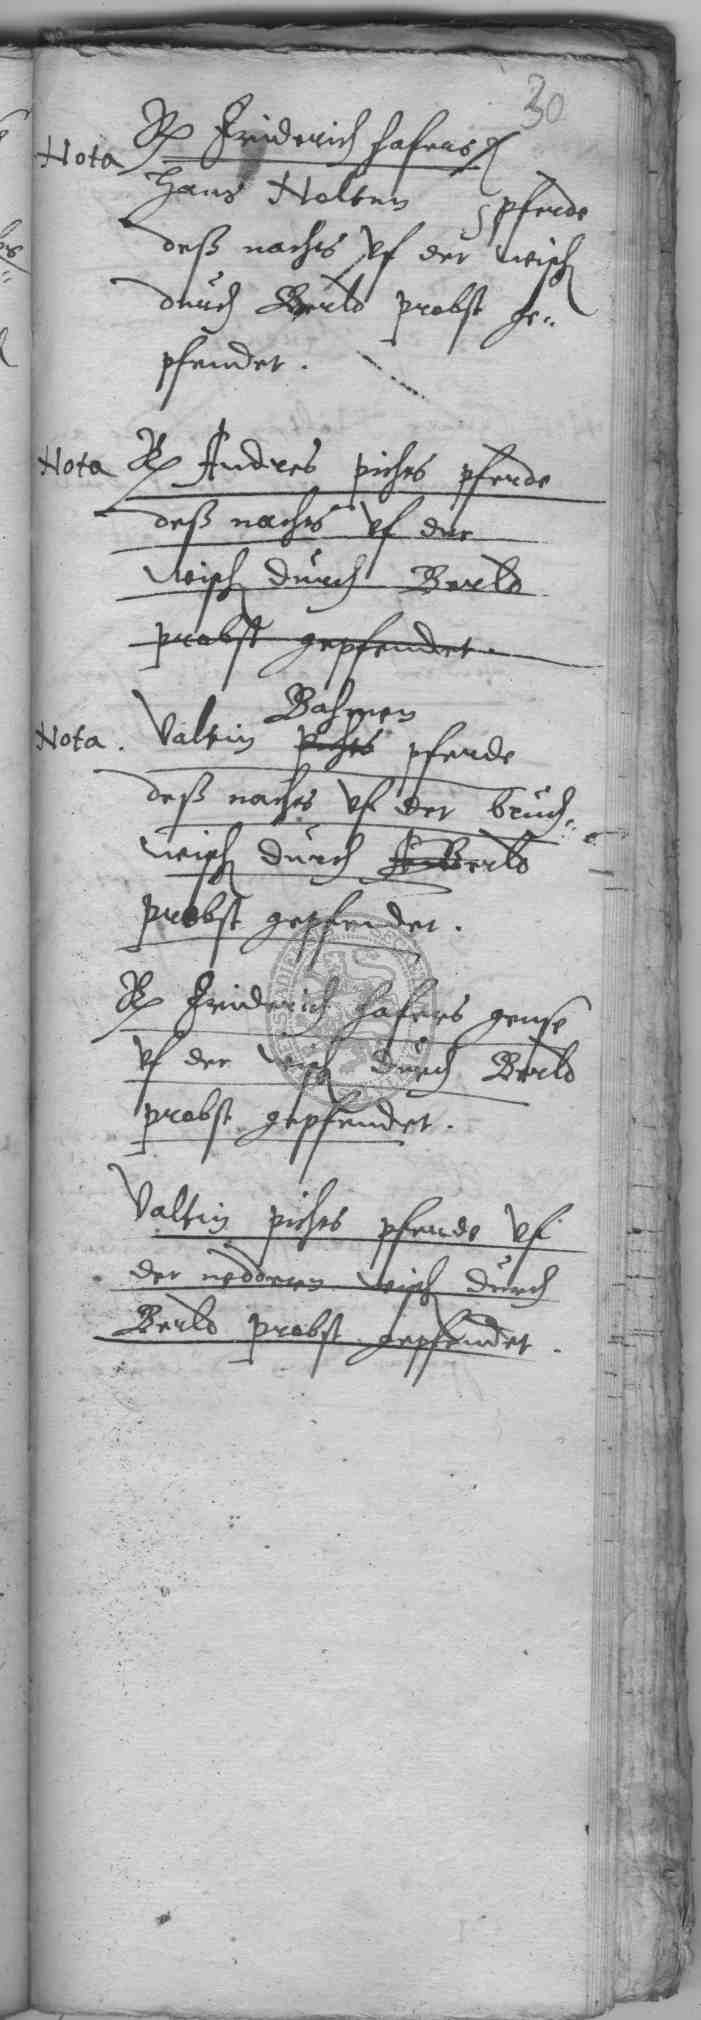 30
Nota Friderich Hafers
Hans Nolten pferde
deß nachts vf der wisch
durch Berld probst ge-
pfendet.
Nota Andres pichts pferde
deß nachts vf der
wisch durch Berld
probst gepfendet.
Bahmen
Nota. Valtin pichts pferde
deß nachts vf der bruch-
wisch durch Berld
probst gepfendet.
Friderich Hafers gense
vf der wisch durch Berld
probst gepfendet.
Valtin pichts pferde vf
der nedderen wisch durch
Berld probst gepfendet.